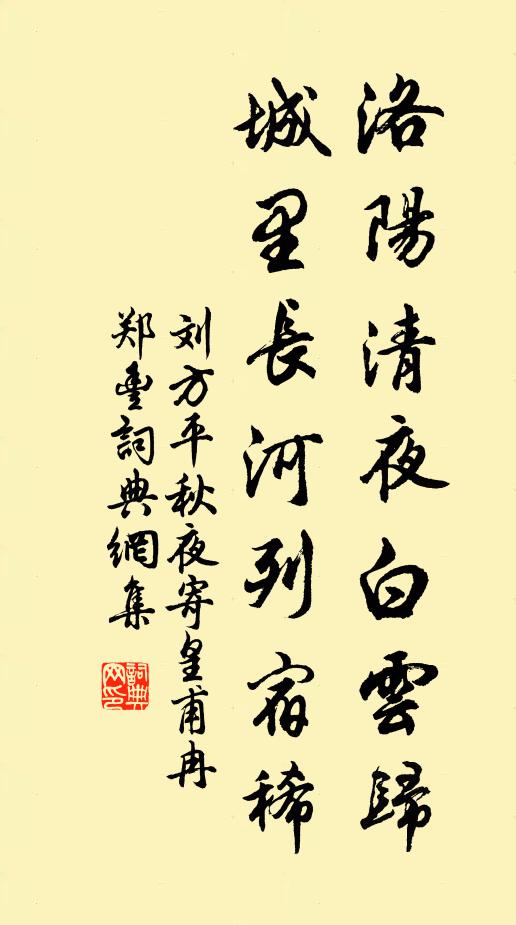 洛陽清夜白雲歸
城里長河列宿稀
刘方平秋夜寄皇甫冉
郑重詞典網集
詞典网印